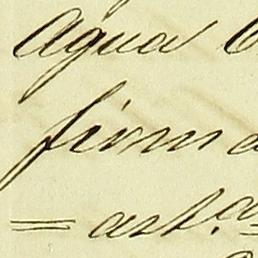 agua
firma
= art.a